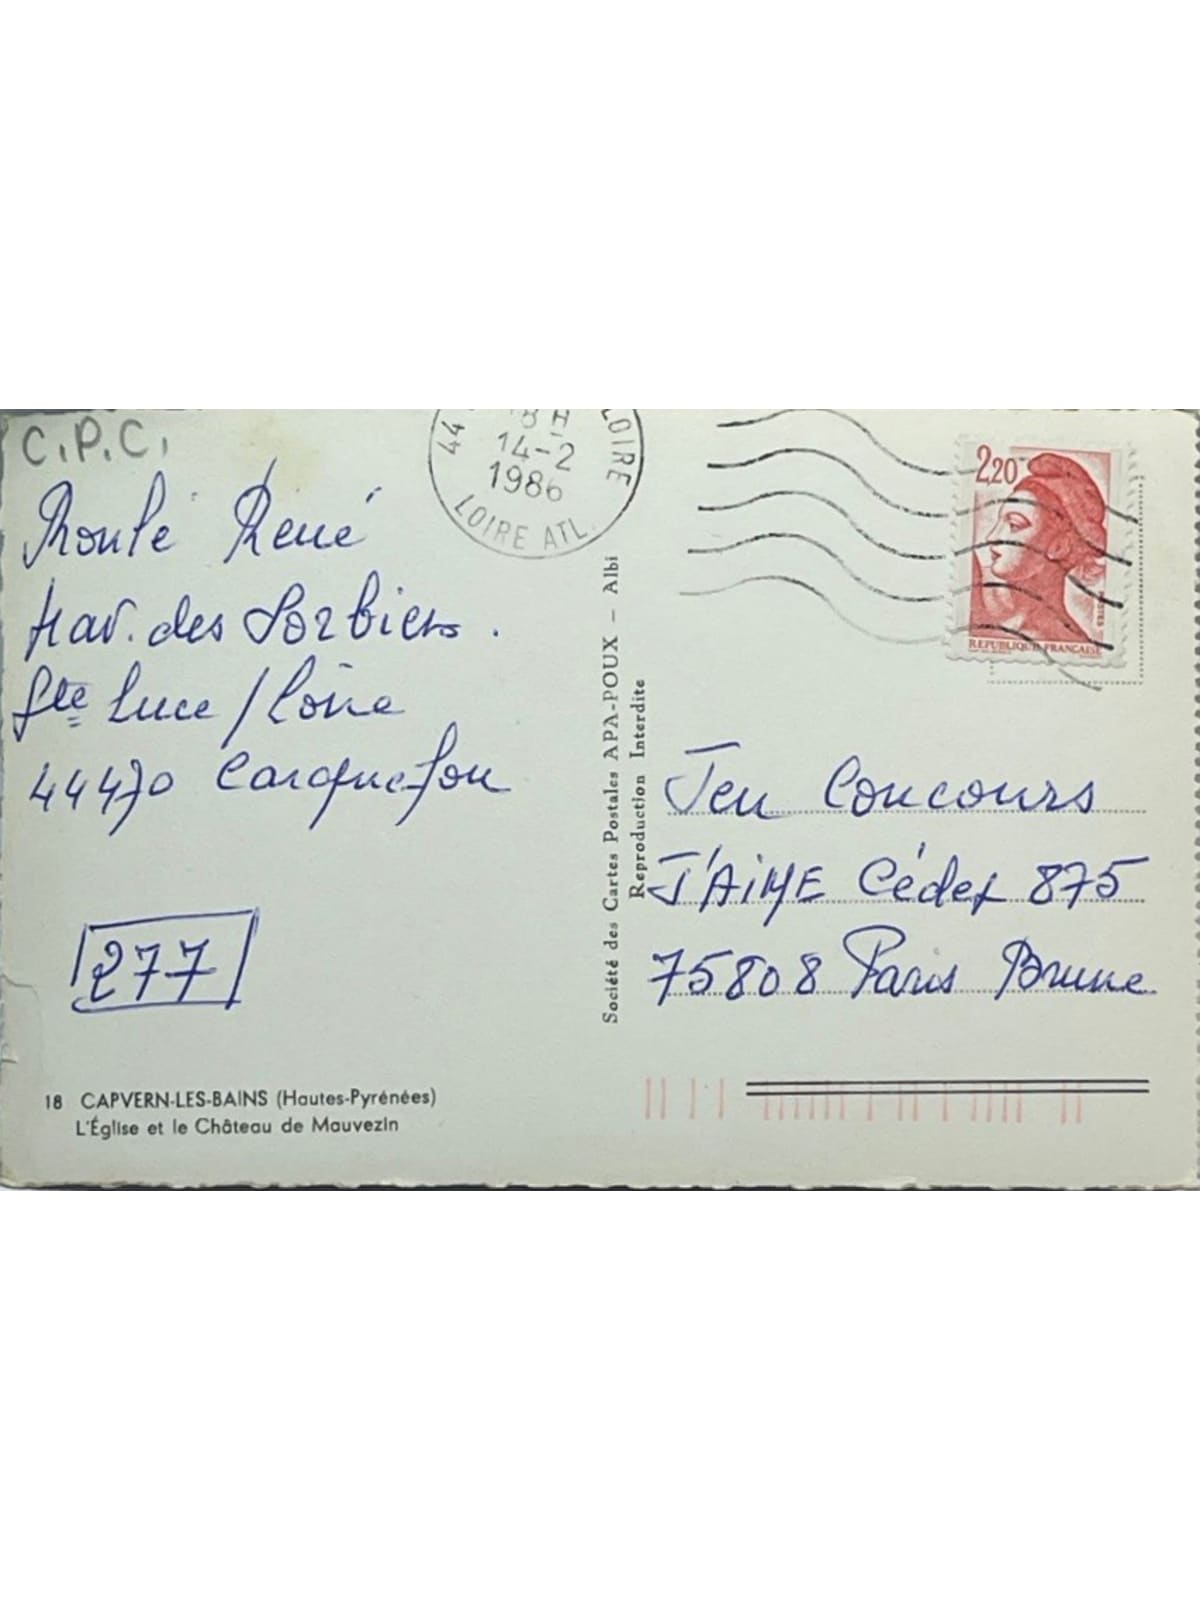 C.P.C.
René
trav. des Sorbiers.
Ste Luce / Loire
44470 Carquefou
277
18 CAPVERN-LES-BAINS (Hautes-Pyrénées)
L'Église et le Château de Mauvezin
44
18 H
14-2
1986
LOIRE
LOIRE ATL.
Société des Cartes Postales APA-POUX – Albi
Reproduction Interdite
2,20
POSTES
REPUBLIQUE FRANÇAISE
Jeu Concours
J'AIME Cédex 875
75808 Paris Brune